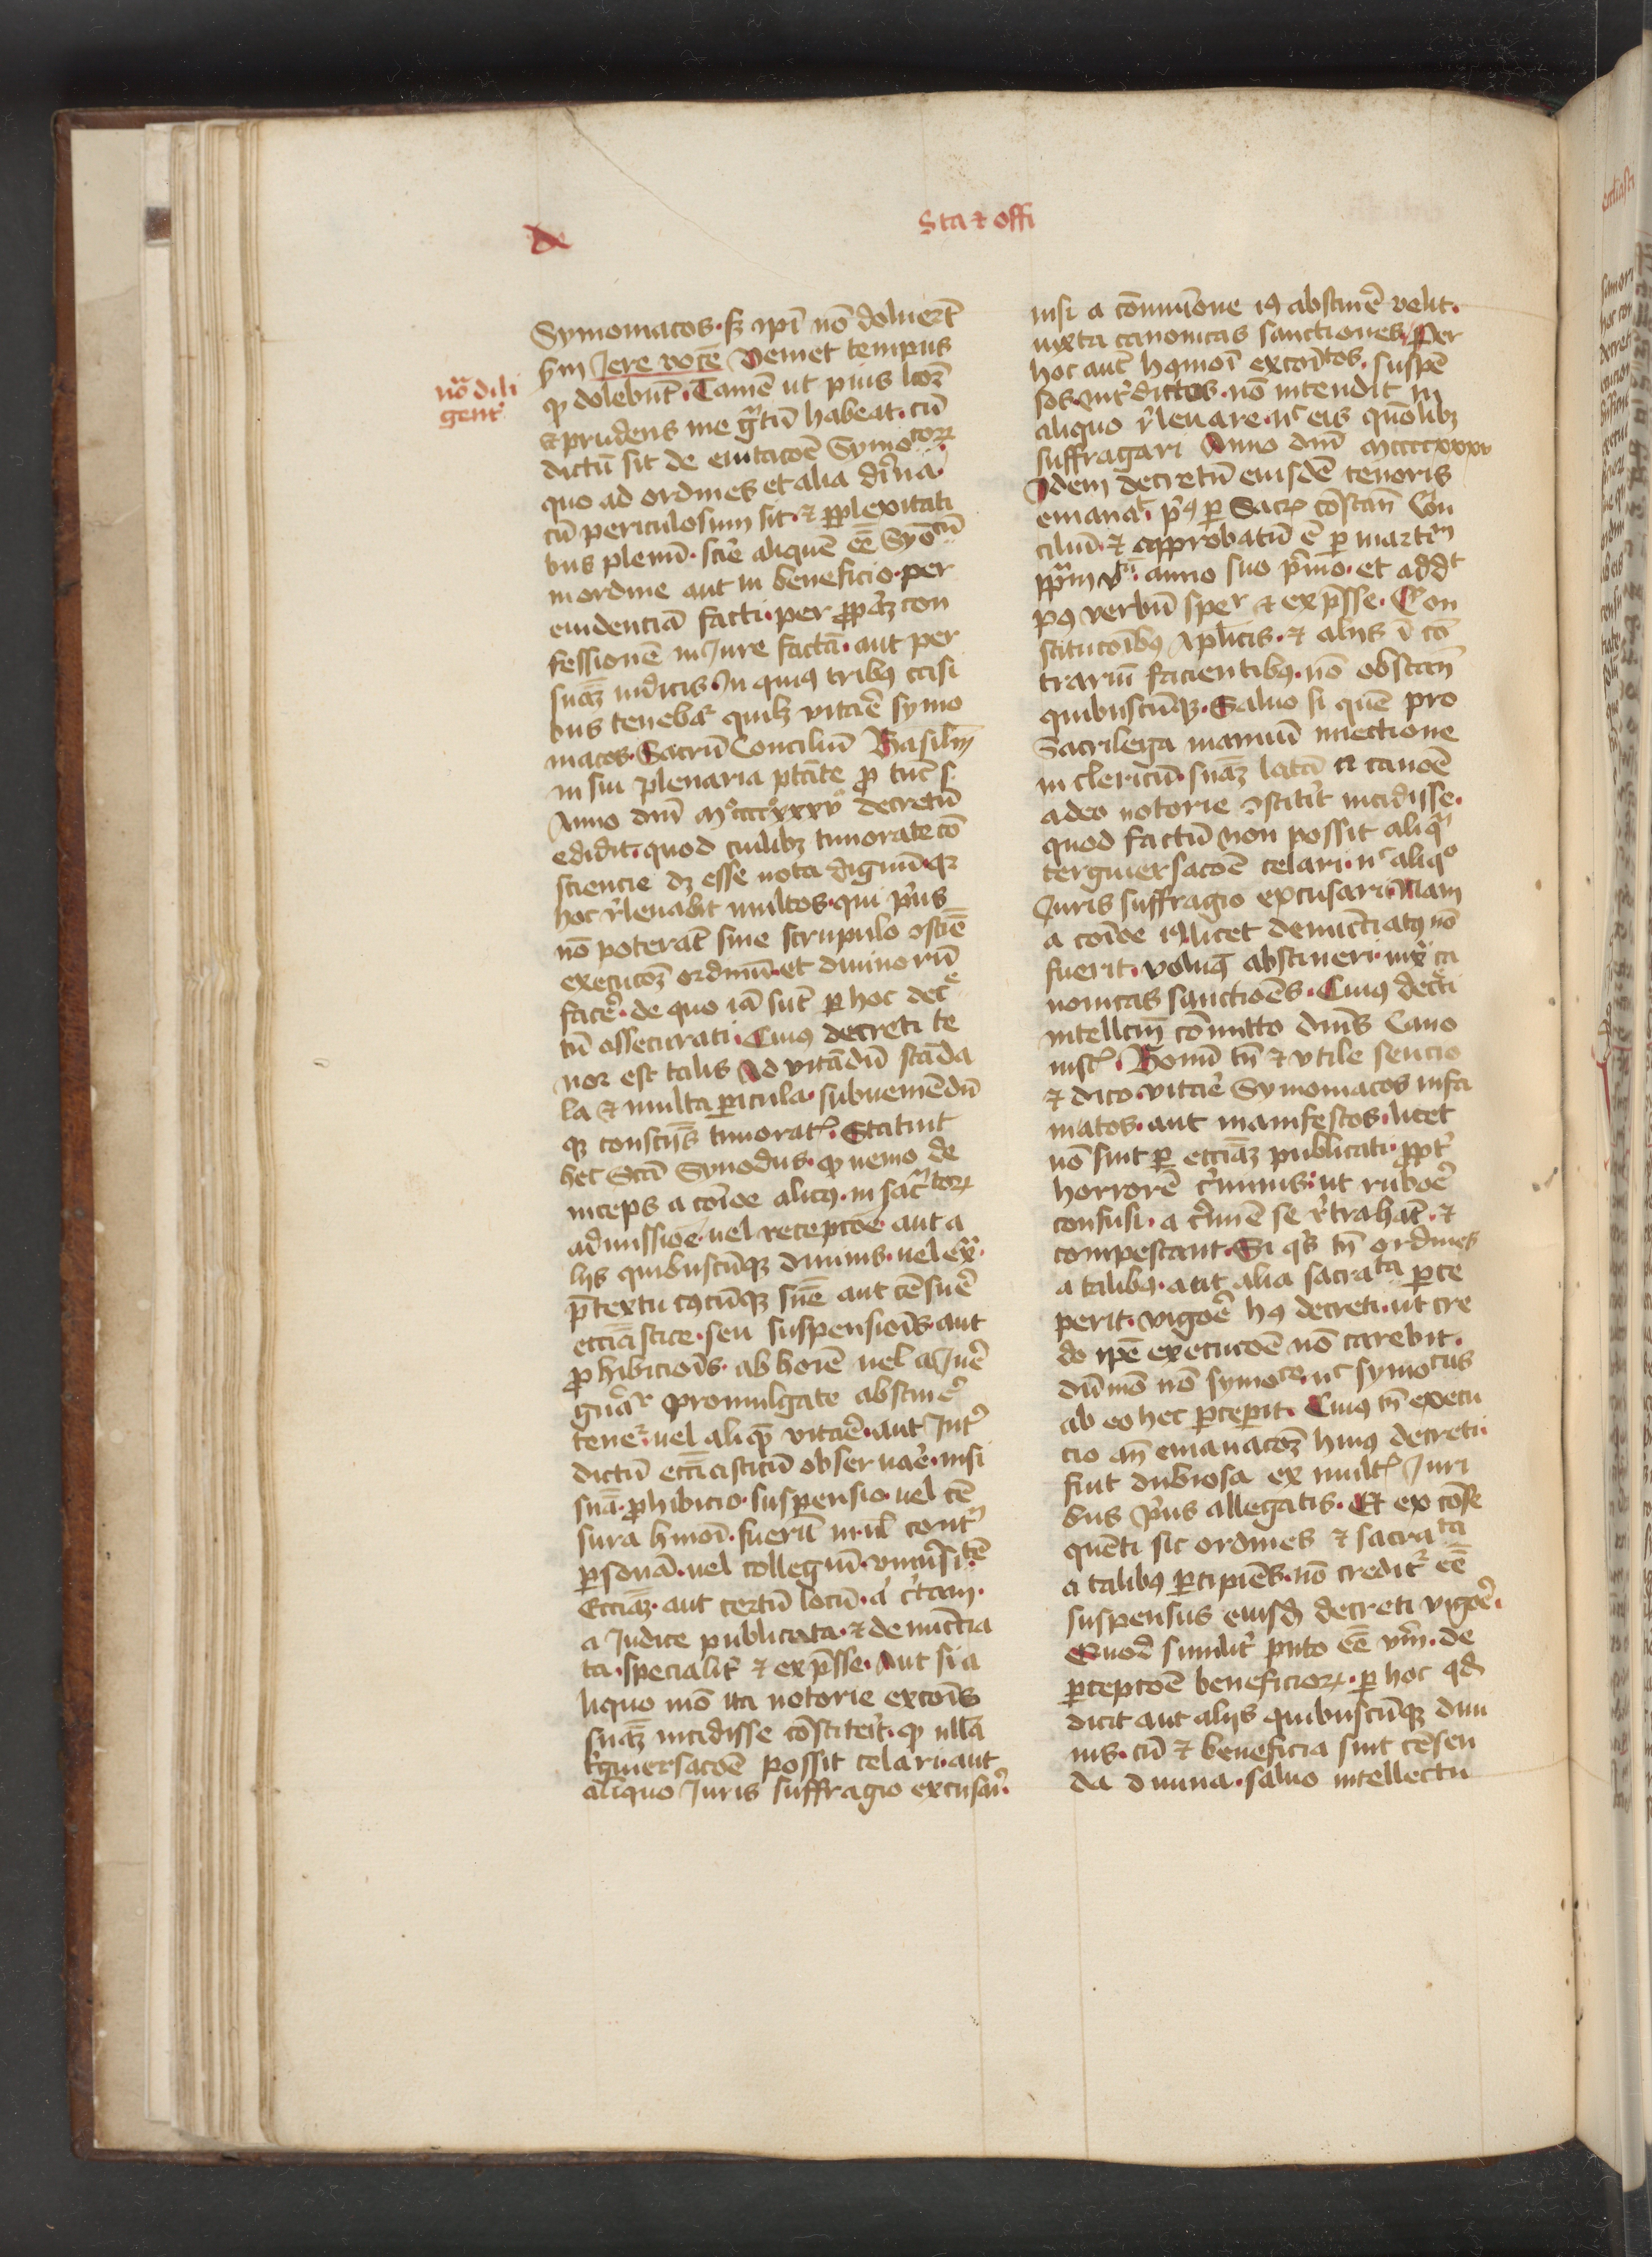 de
Sta et offi
Symoniacos · sz ipi nō doluerūt
scdm Jere vocē Veniet tempus
nō dili
genr
qp dolebūt · Tamē ut pius lcoz
et prudens me grātū habeat · cū
dictū sit de euitacōe Symocorꝝ
quo ad ordines et alia diuina
cū periculosum sit · et ꝑplexitati
bus plenū · scire aliquē eē Syocū
in ordine aut in beneficio · per
euidenciā facti · per ꝓpāz con
fessionē in Jure factā · aut per
snāz iudicis · In quiꝰ tribꝰ casi
bus tenebaꝛ quilꝫ vitare symo
niacos · Sacrū Conciliū Basiliēn
in sui plenaria ptāte ꝓ tūc s
Anno dnī Mºccccºxxxv decretū
edidit · quod cuilibꝫ timorate cō
sciencie dꝫ esse nota dignū · qꝛ
hoc releuabit multos · qui prius
nō poterāt sine scrupulo ꝯsciē
execucoꝫ ordinū · et diuinorū
facere · de quo iā sūt ꝑ hoc dece
tū assecurati · Cuiꝰ decreti te
nor est talis Ad vitādū scāda
la et multa pericula · subueniēdū
qꝫ consciis timorat · Statuit
hec Scā Synodus · qp nemo de
inceps a coīoe alicꝰ · in sacrtorꝝ
admissioe · uel recepcoe · aut a
liis quibuscūqꝫ diuinis · uel ex
p̄textu cꝰcūqꝫ snīe aut cēsure
ecciāstice · seu suspensiōis aut
ꝓhibiciōis · ab hoīe uel a Jure
gnāꝛ promulgate abstinere
teneꝛ · uel aliqp vitare · aut Intr
dictū ecciāsticū obseruare · nisi
snā · ꝓhibicio · suspensio · uel cē
sura hmoī · fuerit in ul contª
ꝑsonā · uel collegiū · vniuersitē
Ecciāꝫ · aut certū locū · a certam ·
a Judice publicata · et denuncia
ta · specialitr et exp̄sse · Aut si a
liquo mō ita notorie excoīs
snāꝫ incidisse cōstiterit · qp ulla
tgiuersacoē possit celari · aut
aliquo Juris suffragio excusari ·
nisi a cōmunione iꝰ abstinere velit ·
iuxta canonicas sanctiones Per
hoc aut hꝰmoī excoītos · suspē
sos · intrdictos · nō intendit in
aliquo releuare · nc eis quōlibꝫ
suffragari Anno dnī mccccxxxv
Idem decretū eiusdē tenoris
emanat · prꝰ ꝑ Sacꝝ cōstan Con
ciliū · et approbatū ē ꝑ martim
ppam vtū · anno suo primo · et addt
pꝰ verbū sper et exp̄sse · Con
stitucoibꝰ Aplicis · et aliis ī cō
trariū facientibꝰ · nō obstan
quibuscūqꝫ · Saluo si quē pro
Sacrilega manuū iniectione
in clericū · snāꝫ latā a canōe
adeo notorie ꝯstiterit incidisse ·
quod factū non possit aliqª
tergiuersacoē celari · nc aliqo
Juris suffragio excusari · Nam
a coīoe iꝰ licet denunciatꝰ nō
fuerit · volumꝰ abstineri · iux ca
nonicas sanctioēs · Cuiꝰ decrti
intellcm cōmitto dnīs Cano
nist · Bonū tn et vtile sencio
et dico · vitare Symoniacos infa
matos · aut manifestos · licet
nō sint ꝑ ecciāꝫ publicati · ꝓptr
horrorē criminis · ut ruboe
confusi · a crimē se retrahāt · et
compescant · Si qs tn ordines
a talibꝰ · aut alia sacrata ꝑce
perit · vigoe hꝰ decreti · ut cre
do ipē execucoē nō carebit ·
dūmō nō symoce · nc symocus
ab eo hec ꝑcepit · Cuiꝰ tn execu
cio an emanacoꝫ huiꝰ decreti
fiut dubiosa ex mult Juri
bus prius allegatis · Et ex cōse
quēti sic ordines et sacrata
a talibꝰ ꝑcipiēs · nō creditꝛ eē
suspensus eiusd decreti vigoe ·
Quod similitr puto eē vim · de
ꝑcepcoē beneficiorꝝ · ꝑ hoc qd
dicit aut aliis quibuscūqꝫ diui
nis · cū et beneficia sint cēsen
da diuina · saluo intellectu